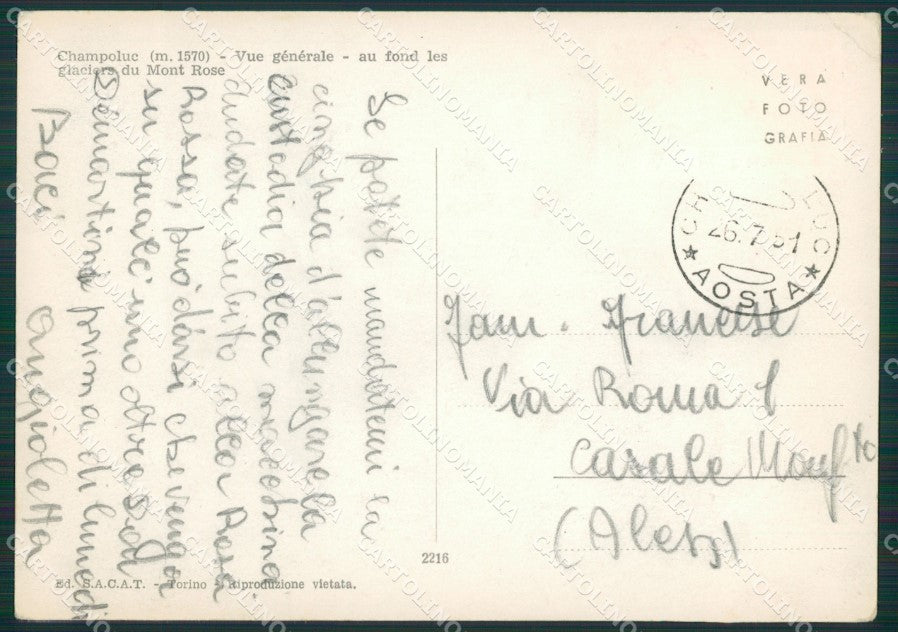 Champoluc (m. 1570) - Vue générale - au fond les
glaciers du Mont Rose
VERA
FOTO
GRAFIA
CH LUC
26.7.51
AOSTA
Se potete mandatemi la
cinghia d'allungarla
custodia della macchina
andate subito alla Rosa
Rossa, può darsi che venga
su qualc'uno
Demartini prima di lunedì
Baci Angioletta
Fam. Francese
Via Roma 1
Casale Monf/to
(Aless)
2216
Ed. S.A.C.A.T. - Torino - Riproduzione vietata.
CARTOLINOMANIA